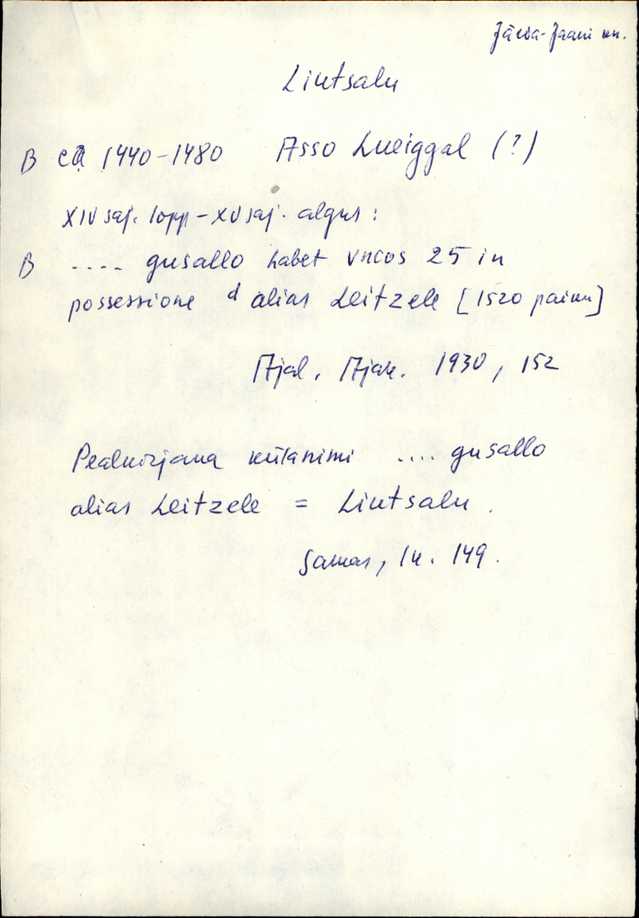 Järva-Jaani kn.
Liutsalu
B ca 1440-1480 Asso Lueiggal (?)
XIV saj. lõpp - XV saj. algus:
B .... gusallo habet vncos 25 in
possessione d alias Leitzele [1520 paiku]
Ajal. Ajak. 1930, 152
Pealkirjana külanimi .... gusallo
alias Leitzele = Liutsalu.
Samas, lk. 149.